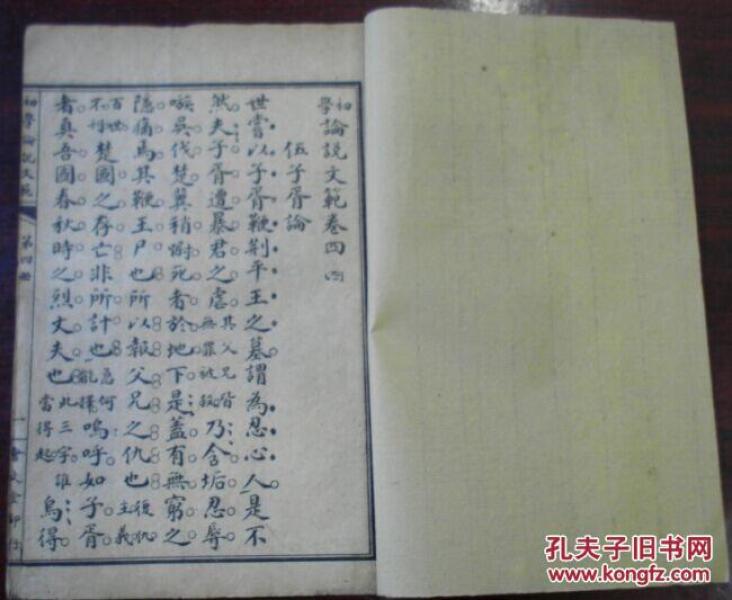 初學論說文範卷四
伍子胥論
世嘗以子胥鞭荊平王之墓謂為忍心人是不
然夫子胥遭暴君之虐其父兄皆無罪被殺乃含垢忍辱
嗾吳伐楚冀稍慰死者於地下是蓋有無窮之
隱痛焉其鞭王尸也所以報父兄之仇也復仇主義
百世不楚國之存亡非所計也急何能擇嗚呼如子胥
者真吾國春秋時之烈丈夫也此三字誰當得起烏得
初學論說文範
第四冊
一
會文堂印行
孔夫子旧书网
www.kongfz.com